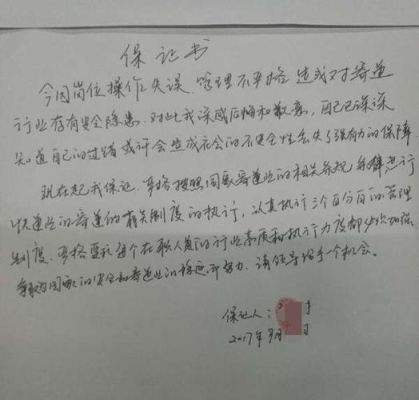 保证书
今因岗位操作失误,管理不严格造成对寄递
行业存有安全隐患,对此我深感后悔和歉意,自己已深深
知道自己的过错或许会造成社会的不安全性丢失了强有力的保障
现在起我保证,严格按照国家寄递业的相关条规
快递业的寄递的有关制度的执行,认真执行三个百分百的管理
制度。严格要求每个在职人员的行业素质和执行力度都必须加强
争取为国家的安全和寄递业的稳定而努力,请领导给予一个机会。
保证人:
2017年 月 日